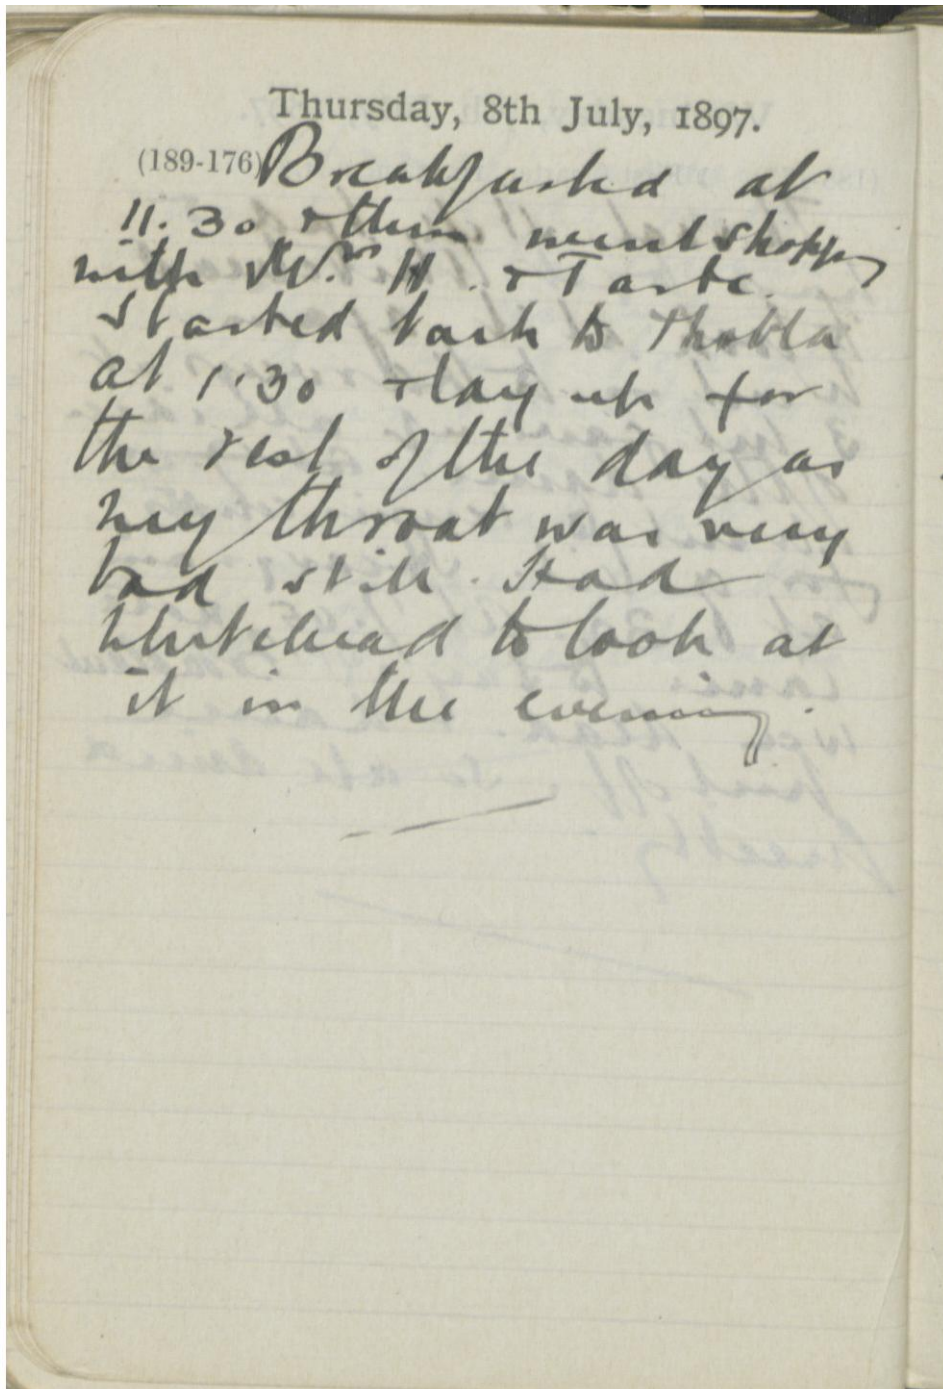 Thursday, 8th July, 1897.
(189-176) Breakfasted at
11.30 & then went shopping
with Mrs H. &
Started back to Thobba
at 1.30 & lay up for
the rest of the day as
my throat was very
bad still. Had
Whitehead to look at
it in the evening.